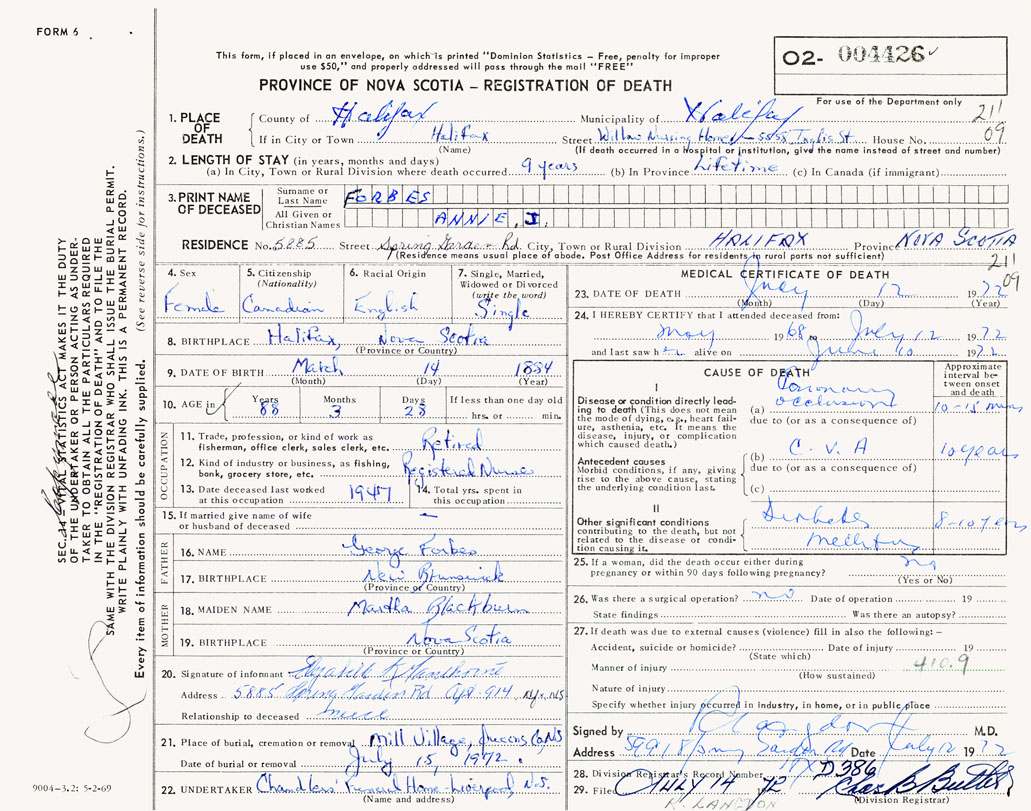 FORM 6
This form, if placed in an envelope, on which is printed "Dominion Statistics – Free, penalty for improper
use $50," and properly addressed will pass through the mail "FREE"
O2- 004426
For use of the Department only
PROVINCE OF NOVA SCOTIA – REGISTRATION OF DEATH
1. PLACE OF DEATH
County of Halifax Municipality of Halifax 211
If in City or Town Halifax Street Willow Nursing Home – 5858 Inglis St. House No. 09
(Name) (If death occurred in a hospital or institution, give the name instead of street and number)
2. LENGTH OF STAY (in years, months and days)
(a) In City, Town or Rural Division where death occurred 9 years (b) In Province Lifetime (c) In Canada (if immigrant)
3. PRINT NAME OF DECEASED
Surname or Last Name FORBES
All Given or Christian Names ANNIE. J.
RESIDENCE No. 5885 Street Spring Garden Rd. City, Town or Rural Division HALIFAX Province NOVA SCOTIA
(Residence means usual place of abode. Post Office Address for residents in rural parts not sufficient)
211
09
4. Sex
Female
5. Citizenship
(Nationality)
Canadian
6. Racial Origin
English
7. Single, Married,
Widowed or Divorced
(write the word)
Single
8. BIRTHPLACE Halifax, Nova Scotia
(Province or Country)
9. DATE OF BIRTH March 14 1884
(Month) (Day) (Year)
10. AGE in
Years Months Days If less than one day
88 3 28 hrs. or min.
OCCUPATION
11. Trade, profession, or kind of work as
fisherman, office clerk, sales clerk, etc. Retired
12. Kind of industry or business, as fishing,
bank, grocery store, etc. Registered Nurse
13. Date deceased last worked
at this occupation 1947
14. Total yrs. spent in
this occupation
15. If married give name of wife
or husband of deceased –
FATHER
16. NAME George Forbes
17. BIRTHPLACE New Brunswick
(Province or Country)
MOTHER
18. MAIDEN NAME Martha Blackburn
19. BIRTHPLACE Nova Scotia
(Province or Country)
20. Signature of informant Elizabeth
Address 5885 Spring Garden Rd Apt. 914 Hfx. NS
Relationship to deceased niece
21. Place of burial, cremation or removal Mill Village, Queens Co. N.S
Date of burial or removal July 15, 1972.
22. UNDERTAKER Chandlers' Funeral Home Liverpool, N.S.
(Name and address)
MEDICAL CERTIFICATE OF DEATH
23. DATE OF DEATH July 12 1972
(Month) (Day) (Year)
24. I HEREBY CERTIFY that I attended deceased from:
May 1968 to July 12 1972
and last saw her alive on June 10 1972
CAUSE OF DEATH
Approximate
interval be-
tween onset
and death
I
Disease or condition directly lead-
ing to death (This does not mean
the mode of dying, e.g., heart fail-
ure, asthenia, etc. It means the
disease, injury, or complication
which caused death.)
(a) Coronary occlusion 10-15 mins
due to (or as a consequence of)
Antecedent causes
Morbid conditions, if any, giving
rise to the above cause, stating
the underlying condition last.
(b) C.V.A 10 years
due to (or as a consequence of)
(c)
II
Other significant conditions
contributing to the death, but not
related to the disease or condi-
tion causing it.
Diabetes Mellitus 8-10 years
25. If a woman, did the death occur either during
pregnancy or within 90 days following pregnancy? no
(Yes or No)
26. Was there a surgical operation? no Date of operation 19
State findings Was there an autopsy?
27. If death was due to external causes (violence) fill in also the following: –
Accident, suicide or homicide? Date of injury 19
(State which)
410.9
Manner of injury
(How sustained)
Nature of injury
Specify whether injury occurred in industry, in home, or in public place
Signed by R Langdon M.D.
Address 5991 Spring Garden Rd Date July 12 1972
HFX
28. Division Registrar's Record Number D386
29. Filed JULY 14 72 Butler
(Division Registrar)
R. LANGDON
SEC. 14 VITAL STATISTICS ACT MAKES IT THE DUTY
OF THE UNDERTAKER OR PERSON ACTING AS UNDER-
TAKER TO OBTAIN ALL THE PARTICULARS REQUIRED
IN THE "REGISTRATION OF DEATH" AND TO FILE THE
SAME WITH THE DIVISION REGISTRAR WHO SHALL ISSUE THE BURIAL PERMIT.
WRITE PLAINLY WITH UNFADING INK. THIS IS A PERMANENT RECORD.
Every item of information should be carefully supplied. (See reverse side for instructions.)
9004-3.2: 5-2-69